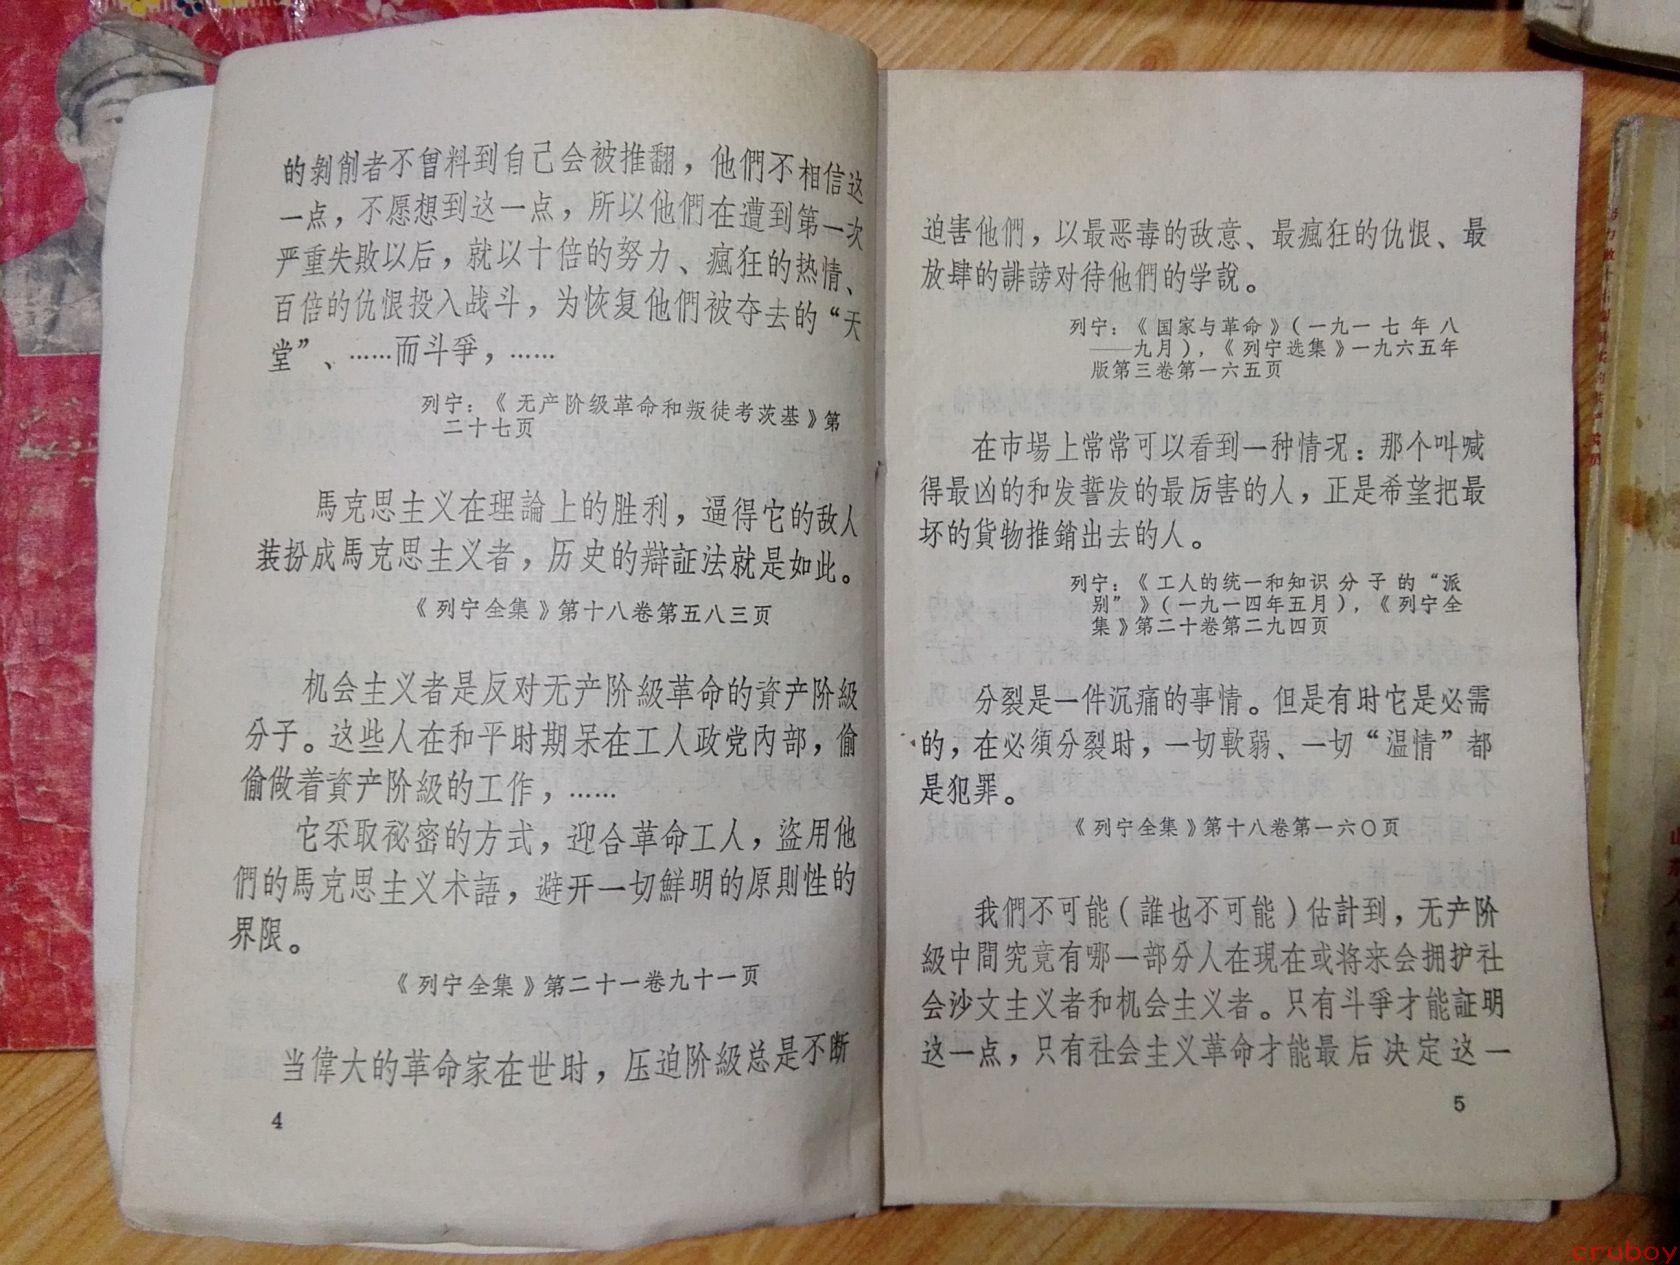 的剝削者不曾料到自己会被推翻，他們不相信这
一点，不愿想到这一点，所以他們在遭到第一次
严重失敗以后，就以十倍的努力、瘋狂的热情、
百倍的仇恨投入战斗，为恢复他們被夺去的“天
堂”、……而斗爭，……
列宁：《无产阶级革命和叛徒考茨基》第
二十七页
馬克思主义在理論上的胜利，逼得它的敌人
装扮成馬克思主义者，历史的辯証法就是如此。
《列宁全集》第十八卷第五八三页
机会主义者是反对无产阶級革命的資产阶級
分子。这些人在和平时期呆在工人政党內部，偷
偷做着資产阶級的工作，……
它采取祕密的方式，迎合革命工人，盜用他
們的馬克思主义术語，避开一切鮮明的原則性的
界限。
《列宁全集》第二十一卷九十一页
当偉大的革命家在世时，压迫阶級总是不断
4
迫害他們，以最恶毒的敌意、最瘋狂的仇恨、最
放肆的誹謗对待他們的学說。
列宁：《国家与革命》（一九一七年八
——九月），《列宁选集》一九六五年
版第三卷第一六五页
在市場上常常可以看到一种情况：那个叫喊
得最凶的和发誓发的最厉害的人，正是希望把最
坏的貨物推銷出去的人。
列宁：《工人的统一和知识分子的“派
别”》（一九一四年五月），《列宁全
集》第二十卷第二九四页
分裂是一件沉痛的事情。但是有时它是必需
的，在必須分裂时，一切軟弱、一切“温情”都
是犯罪。
《列宁全集》第十八卷第一六〇页
我們不可能（誰也不可能）估計到，无产阶
級中間究竟有哪一部分人在現在或将来会拥护社
会沙文主义者和机会主义者。只有斗爭才能証明
这一点，只有社会主义革命才能最后决定这一
5
cruboy